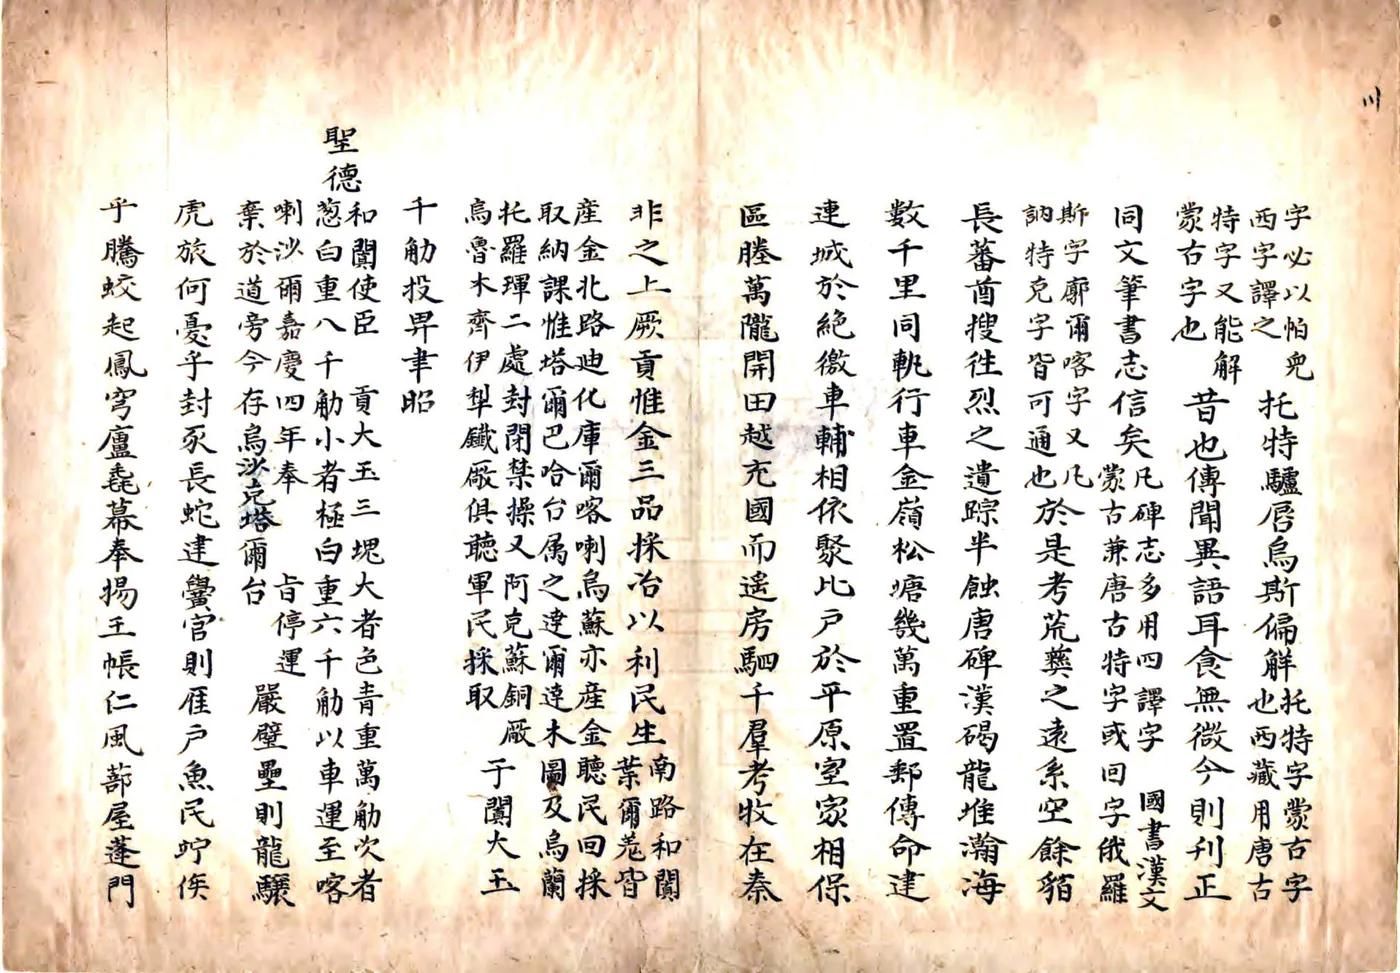 字必以怕兜
西字譯之
托特驢唇烏斯偏解
托特字蒙古字
也西藏用唐古
特字又能解
蒙古字也
昔也傳聞異語耳食無徵今則刊正
同文筆書志信矣
凡碑志多用四譯字 國書漢文
蒙古兼唐古特字或回字俄羅
斯字廓爾喀字又凡
訥特克字皆可通也
於是考荒彝之遠系空餘貊
長蕃酋搜往烈之遺踪半蝕唐碑漢碣龍堆瀚海
数千里同軌行車金嶺松塘幾萬重置郵傳命建
連城於絶徼車輔相依聚比戸於平原室家相保
區塍萬隴開田越充國而遙房駟千羣考牧在秦
非之上厥貢惟金三品採冶以利民生
南路和闐
葉爾羌皆
産金北路迪化庫爾喀喇烏蘇亦産金聽民回採
取納課惟塔爾巴哈台属之達爾達木圖及烏蘭
托羅琿二處封閉禁操又阿克蘇銅厰
烏魯木齊伊犁鐵厰俱聽軍民採取
于闐大玉
千觔投畀聿昭
聖德
和闐使臣 貢大玉三塊大者色青重萬觔次者
葱白重八千觔小者極白重六千觔以車運至喀
喇沙爾嘉慶四年奉 旨停運
棄於道旁今存烏沙克塔爾台
嚴壁壘則龍驤
虎旅何憂乎封豕長蛇建黌官則雁戸魚民竚俟
乎騰蛟起鳳穹廬毳幕奉揚王帳仁風蔀屋蓬門